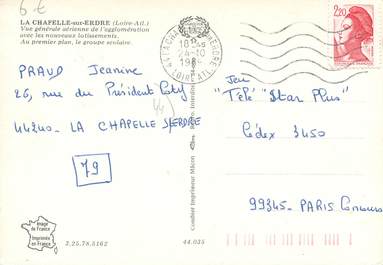 6 €
LA CHAPELLE-sur-ERDRE (Loire-Atl.)
Vue générale aérienne de l'agglomération
avec les nouveaux lotissements.
Au premier plan, le groupe scolaire.
18H
24-10
LOIRE ATL.
2,20
PRAUD Jeanine
26, rue du Président
44240 - LA CHAPELLE S/ERDRE
79
Jeu
"Télé "Star Plus"
Cédex 3450
99345 - PARIS Concours
Combier Imprimeur Mâcon
Image
de France
Imprimée
en France
2.25.78.5162
44.035